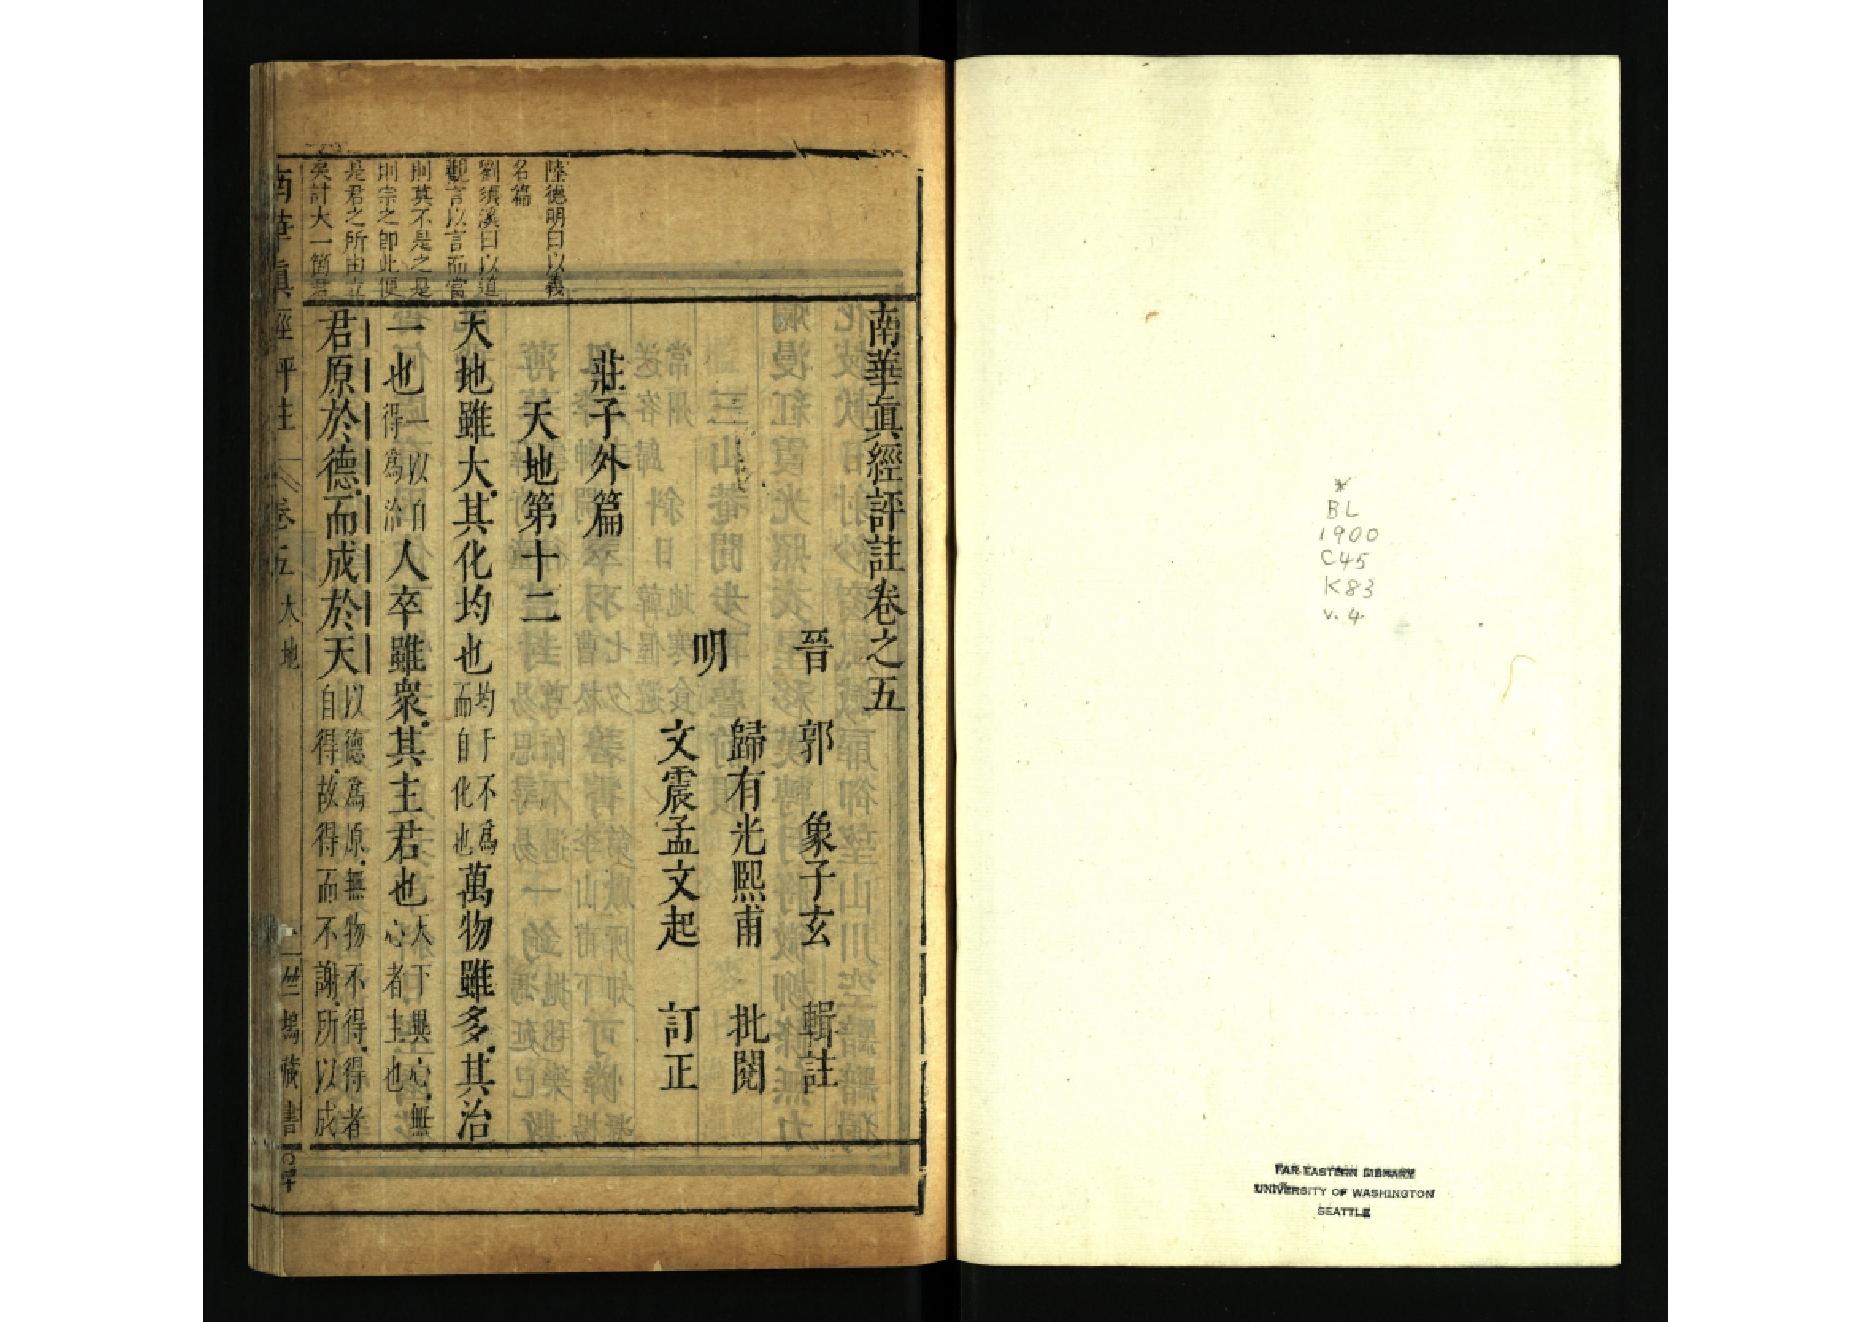 *
BL
1900
C45
K83
v. 4
FAR EASTERN LIBRARY
UNIVERSITY OF WASHINGTON
SEATTLE
南華眞經評註卷之五
晉 郭 象子玄 輯註
明 歸有光熙甫 批閱
文震孟文起 訂正
莊子外篇
天地第十二
陸德明曰以義
名篇
劉須溪曰以道
觀言以言而當
則莫不是之是
則宗之卽此便
是君之所由立
矣計大一箇君
天地雖大其化均也均于不爲而自化也萬物雖多其治
一也一以自得爲治人卒雖衆其主君也天下異心無心者主也
君原於德而成於天以德爲原無物不得得者自得故得而不謝所以成
南華眞經評註 卷五 天地 一 竺塢藏書